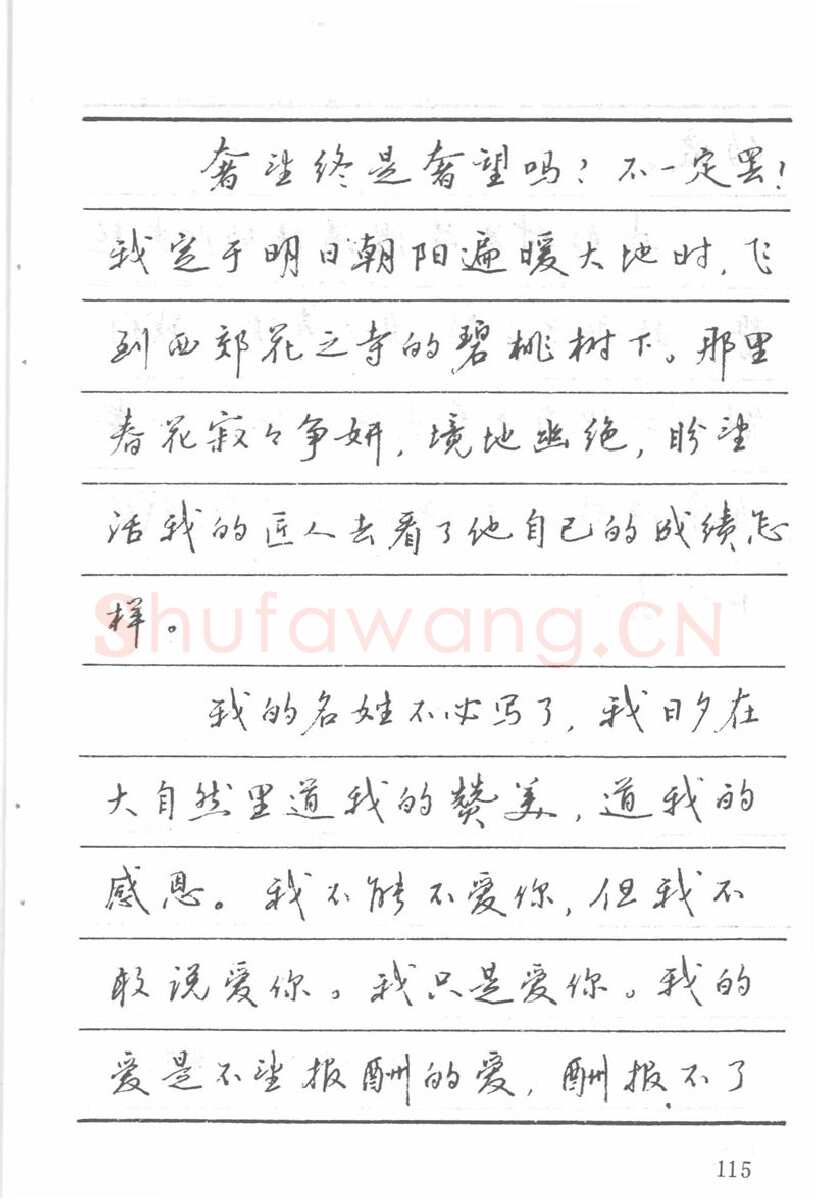 奢望终是奢望吗？不一定罢！
我定于明日朝阳遍暖大地时，飞
到西郊花之寺的碧桃树下。那里
春花寂々争妍，境地幽绝，盼望
活我的匠人去看了他自己的成绩怎
样。
Shufawang.CN
我的名姓不必写了，我日夕在
大自然里道我的赞美，道我的
感恩。我不能不爱你，但我不
敢说爱你。我只是爱你。我的
爱是不望报酬的爱，酬报不了
115